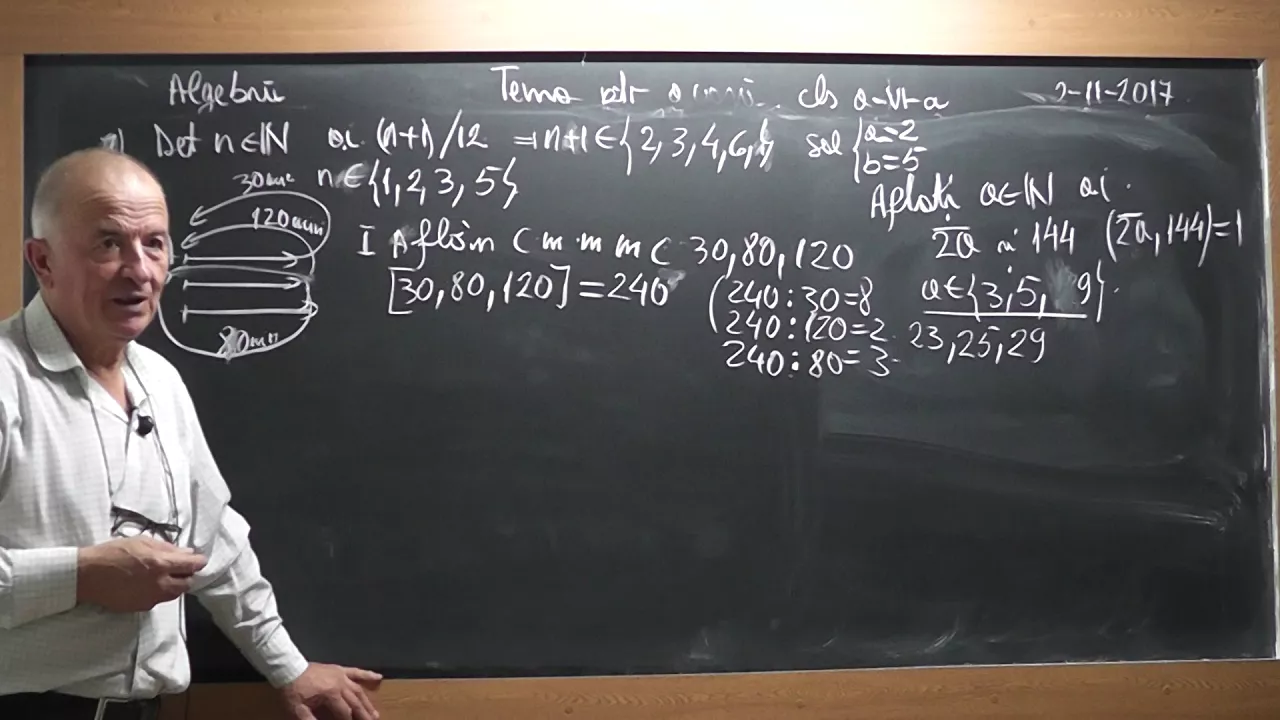 Algebră
Tema ptr cls a-VI-a
2-11-2017
Det n∈ℕ aî (n+1)/12 ⇒ n+1∈{2,3,4,6,}
n∈{1,2,3,5}
sol {a=2
b=5
30min
120min
80min
I Aflăm Cmmmc 30,80,120
[30,80,120]=240
240:30=8
240:120=2
240:80=3
Aflați a∈ℕ aî
2a și 144 (2a,144)=1
a∈{3,5, 9}
23,25,29